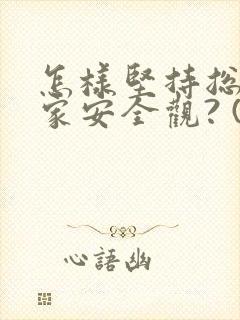 怎樣堅持总
家安全觀?(
心語幽